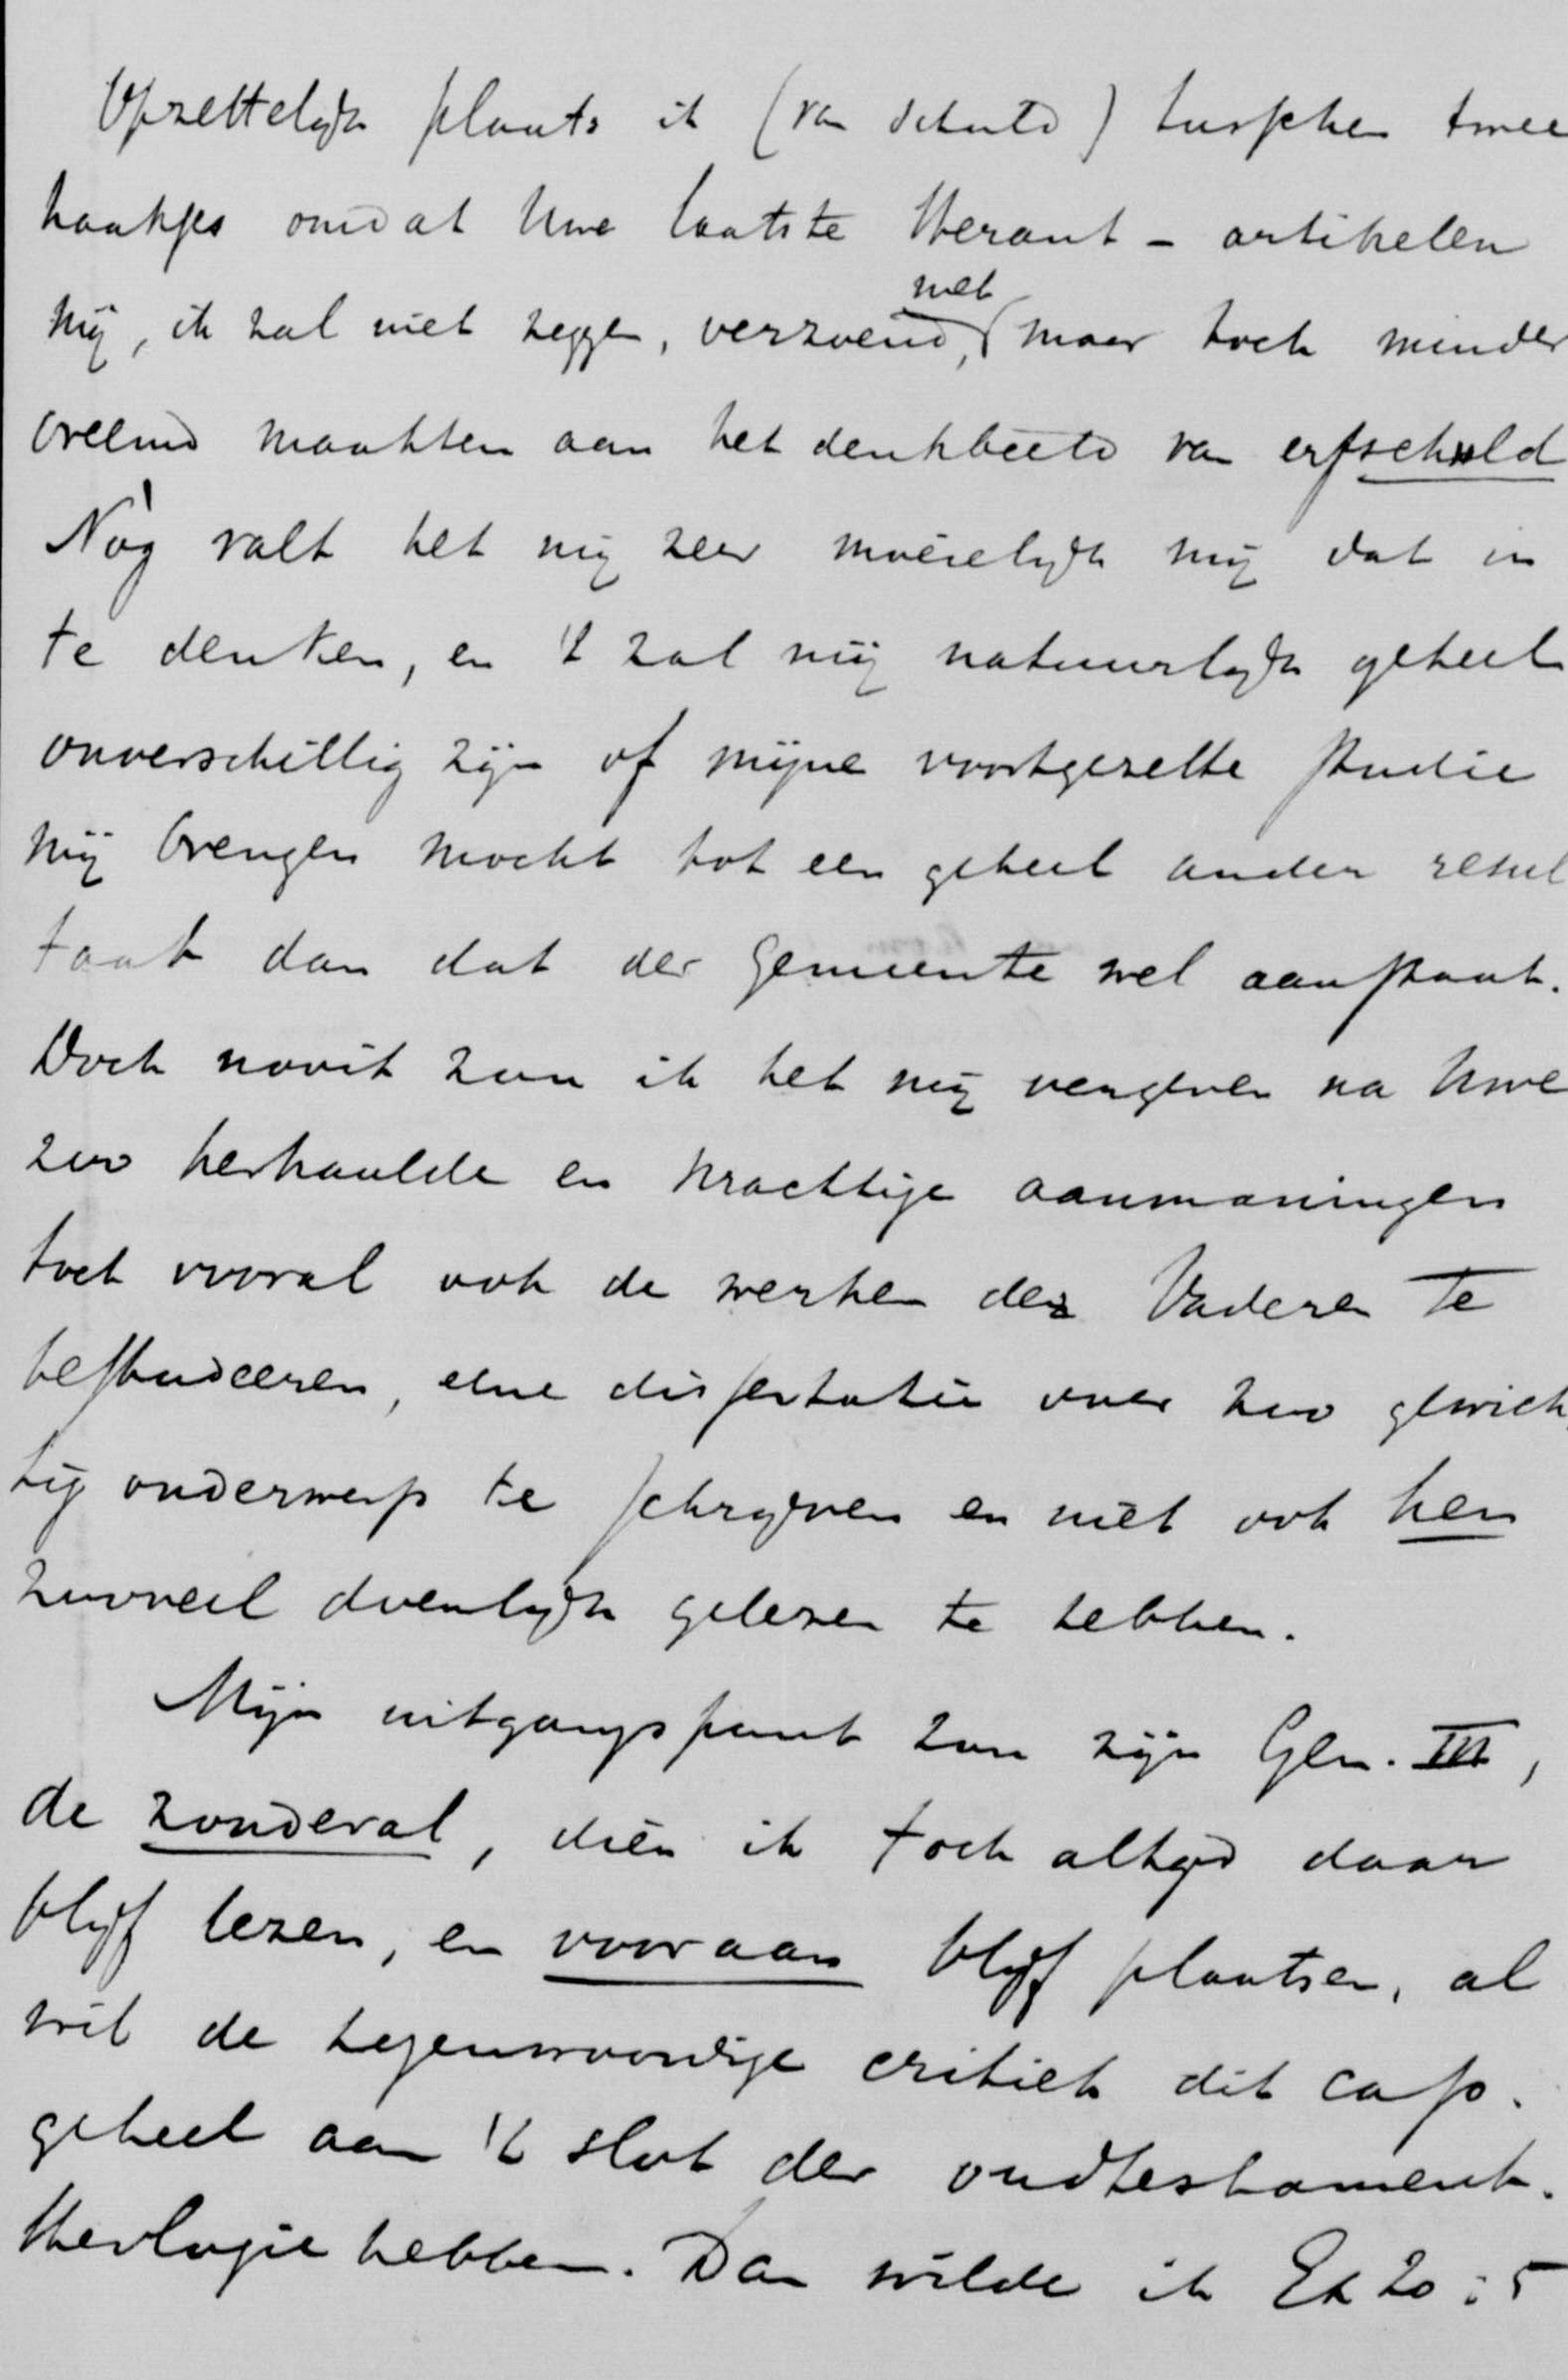 Opzettelijk plaats ik (van schuld) tusschen twee
haakjes omdat Uwe laatste Heraut - artikelen
mij, ik zal niet zeggen, verzoend, met maar toch minder
vreemd maakten aan het denkbeeld van erfschuld
Nòg valt het mij zeer moeielijk mij dat in
te denken, en 't zal mij natuurlijk geheel
onverschillig zijn of mijne voortgezette studie
mij brengen mocht tot een geheel ander resul
taat dan dat der Gemeente wel aanstaat.
Doch nooit zou ik het mij vergeven na Uwe
zoo herhaalde en krachtige aanmaningen
toch vooral ook de werken der Vaderen te
bestudeeren, eene dissertatie over zoo gewich
tig onderwerp te schrijven en niet ook hen
zooveel doenlijk gelezen te hebben.
Mijn uitgangspunt zou zijn Gen. III,
de zondeval, dien ik toch altijd daar
blijf lezen, en vooraan blijf plaatsen, al
wil de tegenwoordige critiek dit cap.
geheel aan 't slot der oudtestament.
theologie hebben. Dan wilde ik Ex 20:5